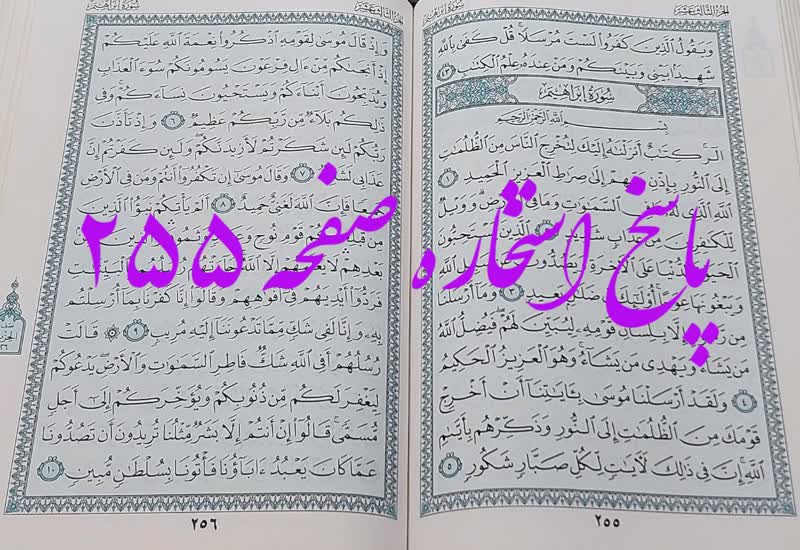 الجزء الثالث عشر
سورة إبراهيم
وَيَقُولُ ٱلَّذِينَ كَفَرُوا۟ لَسْتَ مُرْسَلًا ۚ قُلْ كَفَىٰ بِٱللَّهِ
شَهِيدًۢا بَيْنِى وَبَيْنَكُمْ وَمَنْ عِندَهُۥ عِلْمُ ٱلْكِتَٰبِ ٤٣
سُورَةُ إِبْرَاهِيمَ
بِسْمِ ٱللَّهِ ٱلرَّحْمَٰنِ ٱلرَّحِيمِ
الٓر ۚ كِتَٰبٌ أَنزَلْنَٰهُ إِلَيْكَ لِتُخْرِجَ ٱلنَّاسَ مِنَ ٱلظُّلُمَٰتِ
إِلَى ٱلنُّورِ بِإِذْنِ رَبِّهِمْ إِلَىٰ صِرَٰطِ ٱلْعَزِيزِ ٱلْحَمِيدِ ١
ٱللَّهِ ٱلَّذِى لَهُۥ مَا فِى ٱلسَّمَٰوَٰتِ وَمَا فِى ٱلْأَرْضِ ۗ وَوَيْلٌ
لِّلْكَٰفِرِينَ مِنْ عَذَابٍ شَدِيدٍ ٢ ٱلَّذِينَ يَسْتَحِبُّونَ
ٱلْحَيَوٰةَ ٱلدُّنْيَا عَلَى ٱلْءَاخِرَةِ وَيَصُدُّونَ عَن سَبِيلِ ٱللَّهِ
وَيَبْغُونَهَا عِوَجًا ۚ أُو۟لَٰٓئِكَ فِى ضَلَٰلٍۭ بَعِيدٍ ٣ وَمَآ أَرْسَلْنَا
مِن رَّسُولٍ إِلَّا بِلِسَانِ قَوْمِهِۦ لِيُبَيِّنَ لَهُمْ ۖ فَيُضِلُّ ٱللَّهُ
مَن يَشَآءُ وَيَهْدِى مَن يَشَآءُ ۚ وَهُوَ ٱلْعَزِيزُ ٱلْحَكِيمُ
٤ وَلَقَدْ أَرْسَلْنَا مُوسَىٰ بِـَٔايَٰتِنَآ أَنْ أَخْرِجْ
قَوْمَكَ مِنَ ٱلظُّلُمَٰتِ إِلَى ٱلنُّورِ وَذَكِّرْهُم بِأَيَّىٰمِ
ٱللَّهِ ۚ إِنَّ فِى ذَٰلِكَ لَءَايَٰتٍ لِّكُلِّ صَبَّارٍ شَكُورٍ ٥
٢٥٥
پاسخ استخاره صفحه ۲۵۵
الجزء الثالث عشر
سورة إبراهيم
وَإِذْ قَالَ مُوسَىٰ لِقَوْمِهِ ٱذْكُرُوا۟ نِعْمَةَ ٱللَّهِ عَلَيْكُمْ
إِذْ أَنجَىٰكُم مِّنْ ءَالِ فِرْعَوْنَ يَسُومُونَكُمْ سُوٓءَ ٱلْعَذَابِ
وَيُذَبِّحُونَ أَبْنَآءَكُمْ وَيَسْتَحْيُونَ نِسَآءَكُمْ ۚ وَفِى
ذَٰلِكُم بَلَآءٌ مِّن رَّبِّكُمْ عَظِيمٌ ٦ وَإِذْ تَأَذَّنَ
رَبُّكُمْ لَئِن شَكَرْتُمْ لَأَزِيدَنَّكُمْ ۖ وَلَئِن كَفَرْتُمْ إِنَّ
عَذَابِى لَشَدِيدٌ ٧ وَقَالَ مُوسَىٰٓ إِن تَكْفُرُوٓا۟ أَنتُمْ وَمَن فِى ٱلْأَرْضِ
جَمِيعًا فَإِنَّ ٱللَّهَ لَغَنِىٌّ حَمِيدٌ ٨ أَلَمْ يَأْتِكُمْ نَبَؤُا۟ ٱلَّذِينَ
مِن قَبْلِكُمْ قَوْمِ نُوحٍ وَعَادٍ وَثَمُودَ ۛ وَٱلَّذِينَ مِنۢ
بَعْدِهِمْ ۛ لَا يَعْلَمُهُمْ إِلَّا ٱللَّهُ ۚ جَآءَتْهُمْ رُسُلُهُم بِٱلْبَيِّنَٰتِ
فَرَدُّوٓا۟ أَيْدِيَهُمْ فِىٓ أَفْوَٰهِهِمْ وَقَالُوٓا۟ إِنَّا كَفَرْنَا بِمَآ أُرْسِلْتُم
بِهِۦ وَإِنَّا لَفِى شَكٍّ مِّمَّا تَدْعُونَنَآ إِلَيْهِ مُرِيبٍ ٩ ۞ قَالَتْ
رُسُلُهُمْ أَفِى ٱللَّهِ شَكٌّ فَاطِرِ ٱلسَّمَٰوَٰتِ وَٱلْأَرْضِ ۖ يَدْعُوكُمْ
لِيَغْفِرَ لَكُم مِّن ذُنُوبِكُمْ وَيُؤَخِّرَكُمْ إِلَىٰٓ أَجَلٍ
مُّسَمًّى ۚ قَالُوٓا۟ إِنْ أَنتُمْ إِلَّا بَشَرٌ مِّثْلُنَا تُرِيدُونَ أَن تَصُدُّونَا
عَمَّا كَانَ يَعْبُدُ ءَابَآؤُنَا فَأْتُونَا بِسُلْطَٰنٍ مُّبِينٍ ١٠
٢٥٦